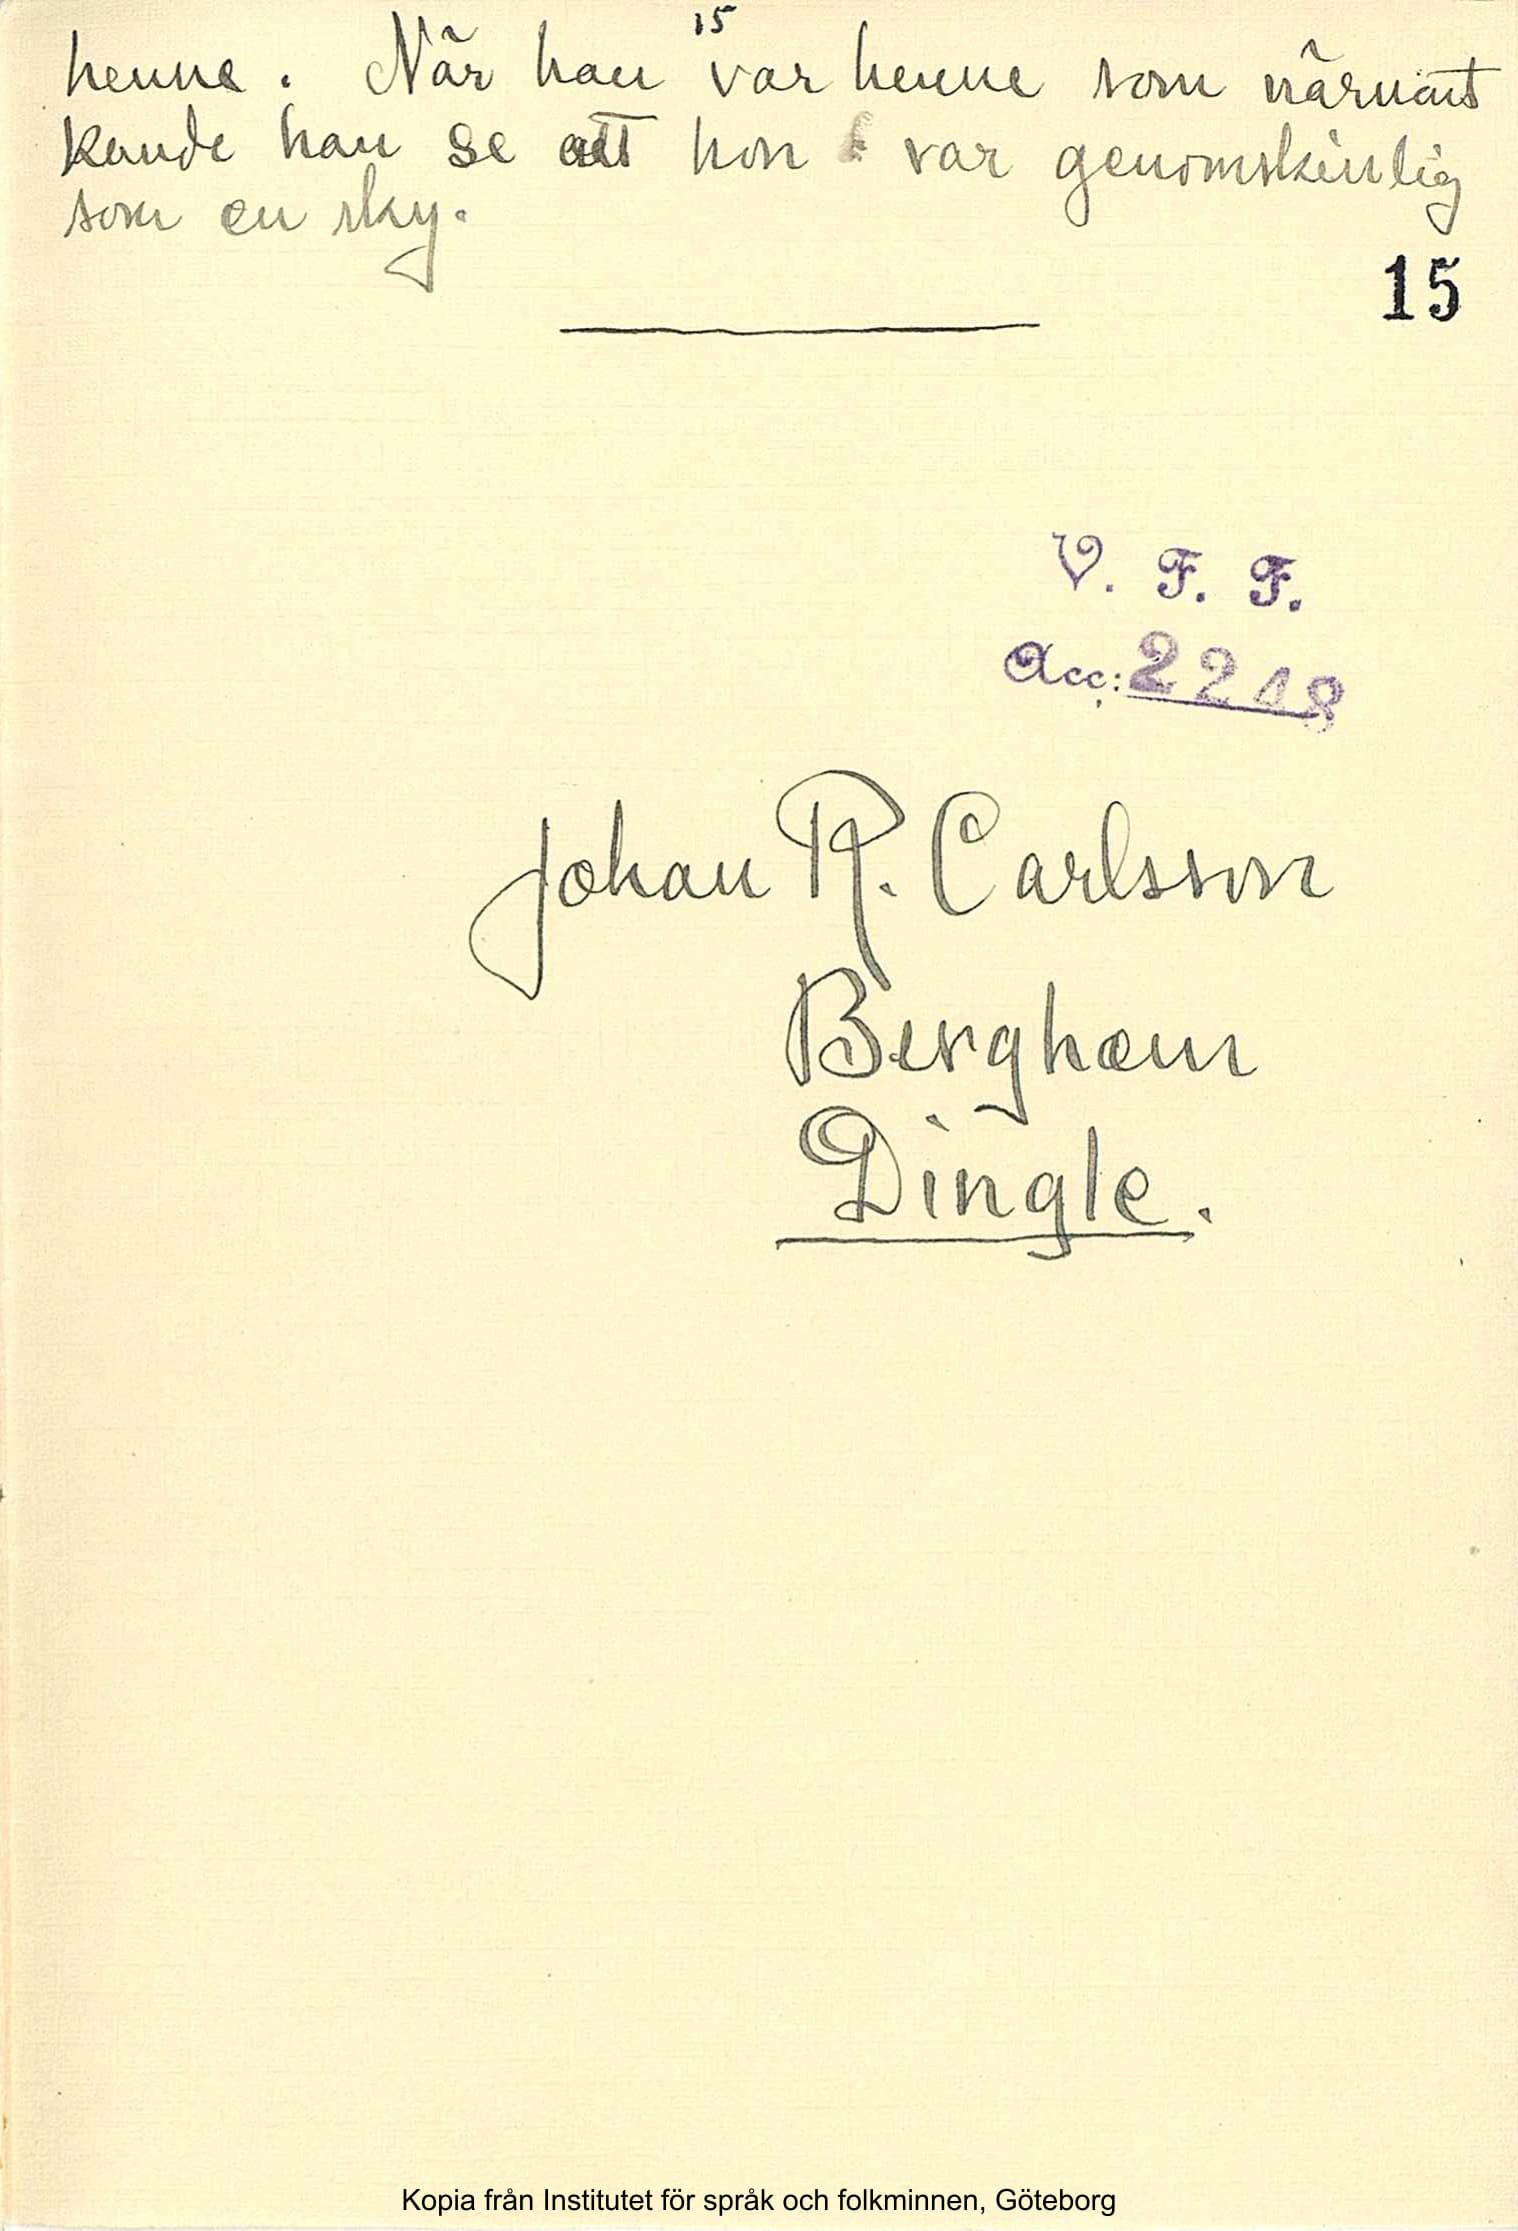 15
henne. När han var henne som närmast
kunde han se att hon var genomskinlig
som en sky.
15
V. F. F.
Acc: 2218
Johan R. Carlsson
Berghem
Dingle.
Kopia från Institutet för språk och folkminnen, Göteborg